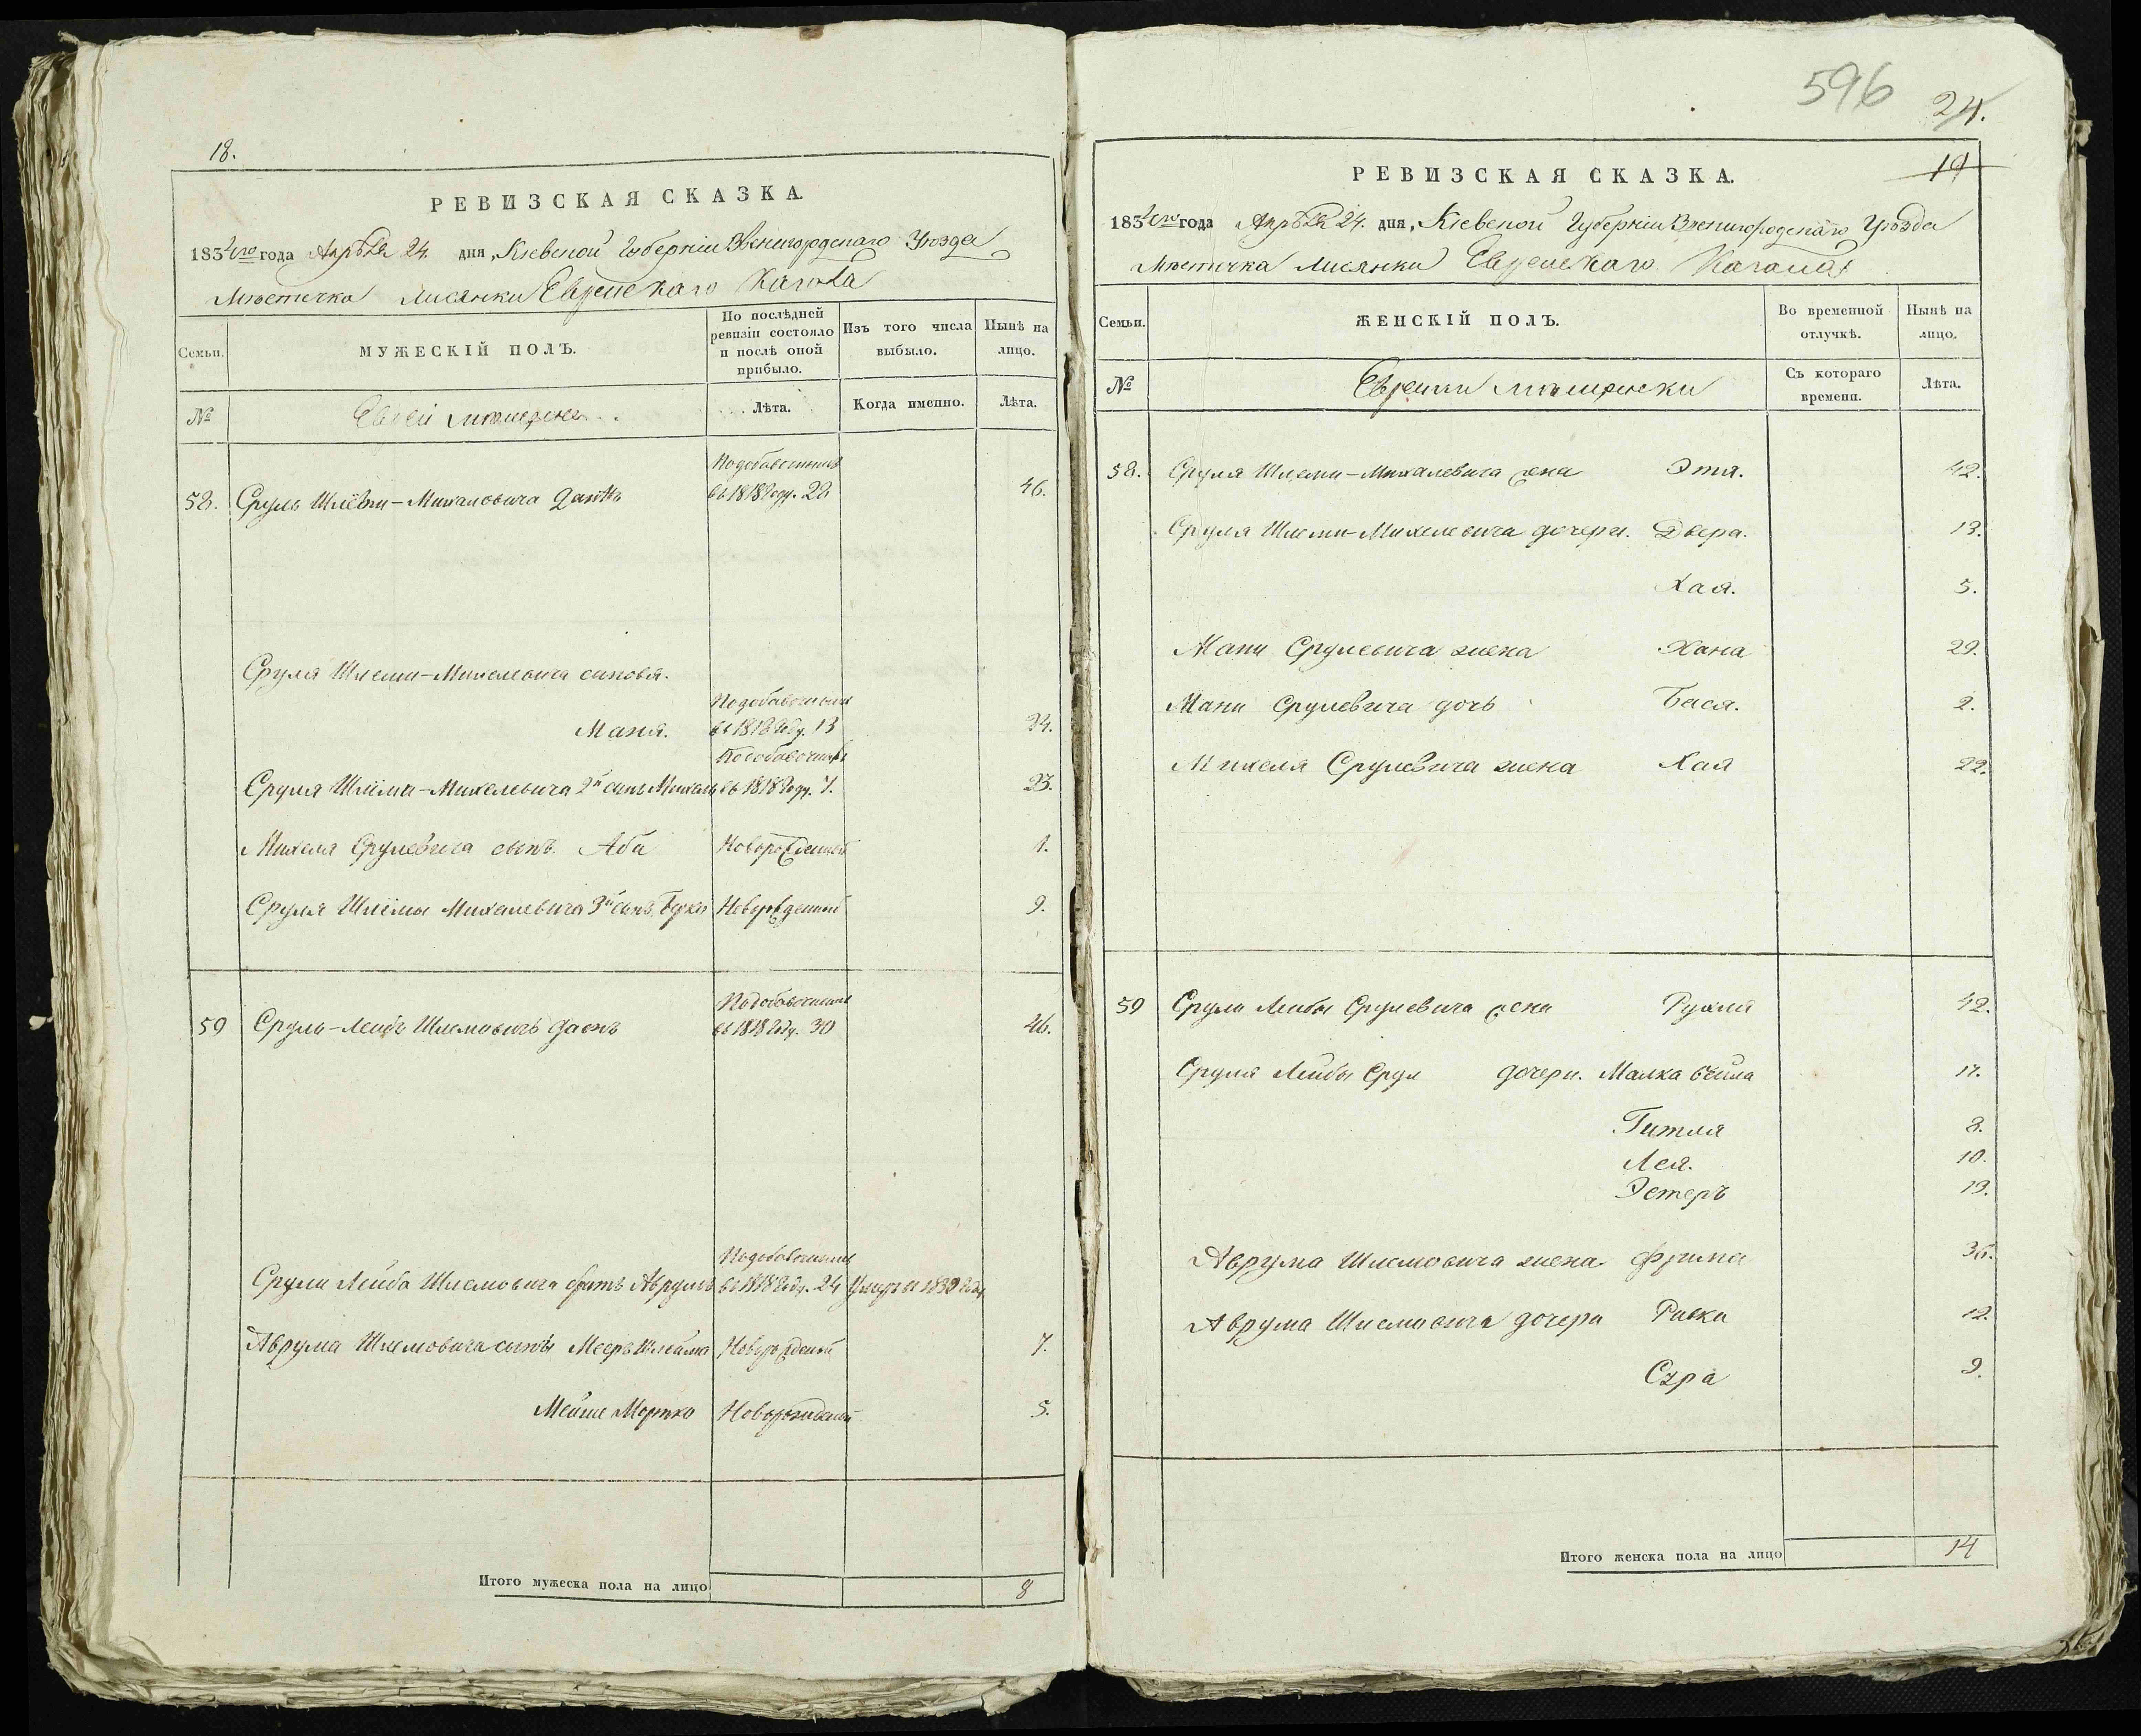 18.
РЕВИЗСКАЯ СКАЗКА.
183 года Апрѣля 24. дня, Кіевской Губерніи Звенигородскаго Уѣзда
Мѣстечка Лисянки Еврейскаго Кагала
Семьи.
МУЖЕСКІЙ ПОЛЪ.
По послѣдней ревизіи состояло и послѣ оной прибыло.
Изъ того числа выбыло.
Нынѣ на лицо.
№
Евреи мѣщане
Лѣта.
Когда именно.
Лѣта.
По добавочной
58. Сруль Шлёми-Михаловича въ 1818 году. 28 46.
Сруля Шлеми-Михелевича сыновья.
По добавочной
Маня. въ 1818 году. 13 24.
По добавочной
Сруля Шлёми-Михелевича 2й сынъ Михель въ 1818 году. 7. 23.
Михеля Срулевича сынъ. Аба Новорожденный 1.
Сруля Шлёмы Михелевича 3й сынъ, Новорожденный 9.
По добавочной
59 Сруль-Лейбъ Шлемовичъ въ 1818 году. 30 46.
По добавочной
Срули Лейба Шлемовича братъ Аврумъ въ 1818 году. 24 Умеръ въ 1830 году
Аврума Шлемовича сынъ Мееръ Шлейма Новорожденый 7.
Мейше Мортко Новорожденый 5.
Итого мужеска пола на лицо 8
596
24.
19
РЕВИЗСКАЯ СКАЗКА.
183 года Апрѣля 24. дня, Кіевской Губерніи Звенигородскаго Уѣзда
Мѣстечка Лисянки Еврейскаго Кагала
Семьи.
ЖЕНСКІЙ ПОЛЪ.
Во временной отлучкѣ.
Нынѣ на лицо.
№
Еврейки мѣщанки
Съ котораго времени.
Лѣта.
58. Сруля Шлеми-Михалевича жена Этя. 42.
Сруля Шлеми-Михелевича дочери. Двера. 13.
Хая. 5.
Мани Срулевича жена Хана 29.
Мани Срулевича дочь Бася. 2.
Михеля Срулевича жена Хая 22.
59 Срули Лейбы Срулевича жена Рухля 42.
Сруля Лейбы Срул дочери. Малка 17.
Гитля 8.
Лея. 10.
Эстеръ 19.
Аврума Шлемовича жена Фрима 36.
Аврума Шлемовича дочери Ривка 12.
Сура 9.
Итого женска пола на лицо 14